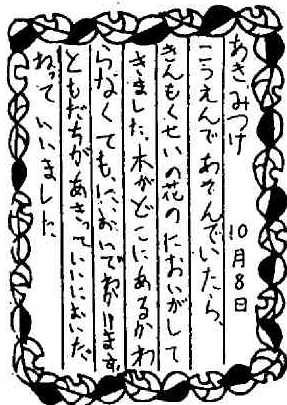 あきみつけ 10月8日
こうえんであそんでいたら、
きんもくせいの花のにおいがして
きました。木がどこにあるかわ
らなくても、においでわかります。
ともだちがあきっていいにおいだ
ねっていいました。